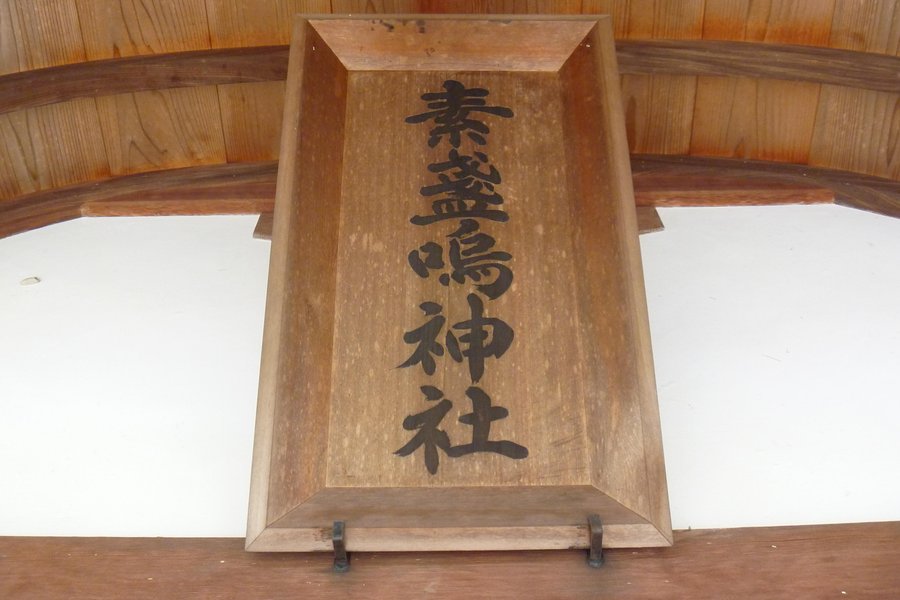 素盞嗚神社